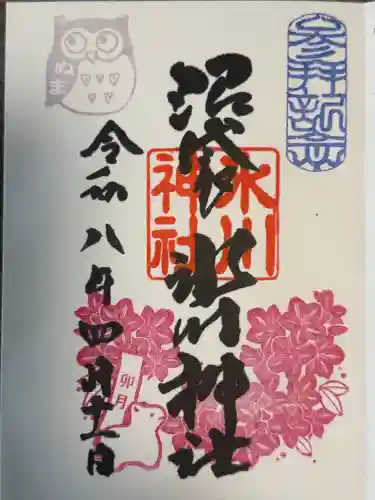 参拝記念
沼袋 氷川神社
氷川
神社
令和八年四月十一日
ぬま
卯月